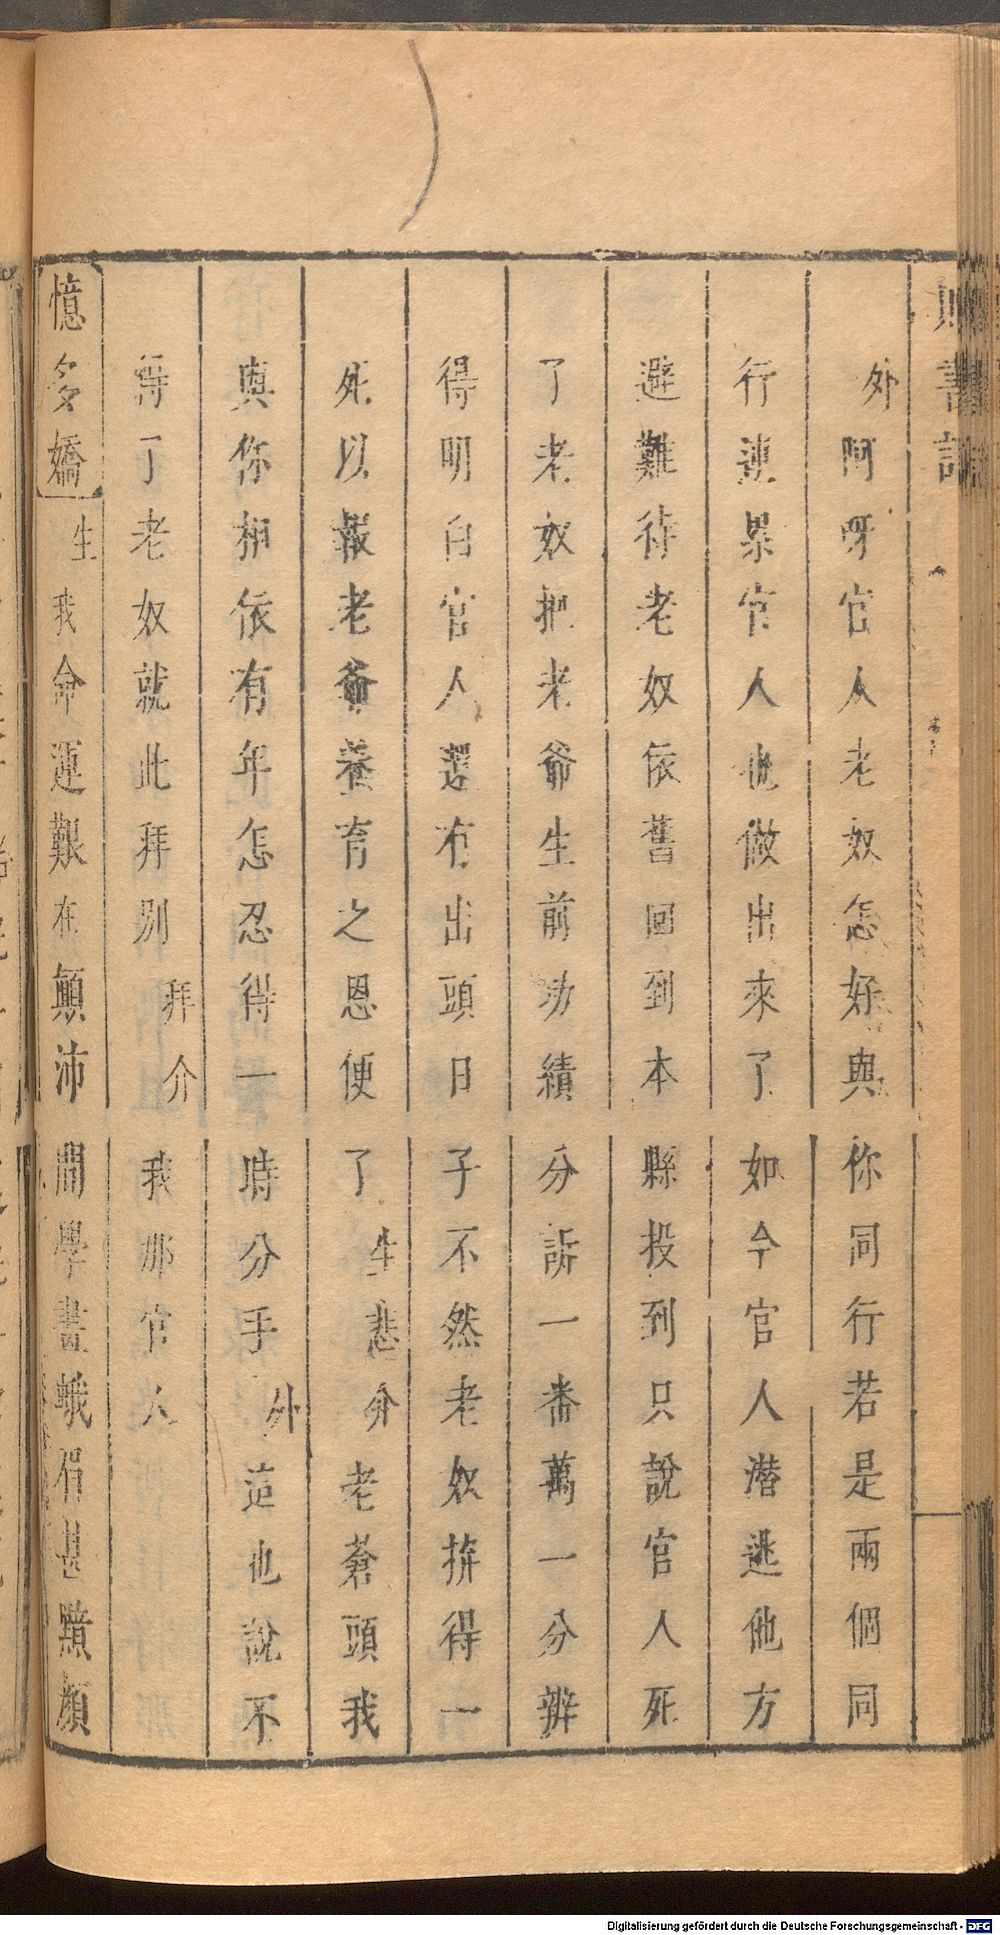 外阿呀官人老奴怎好與你同行若是兩個同
行連累官人也做出來了如今官人潛逃他方
避難待老奴依舊回到本縣投到只說官人死
了老奴把老爺生前功績分訴一番萬一分辨
得明白官人還有出頭日子不然老奴拚得一
死以報老爺養育之恩便了生悲介老蒼頭我
與你相依有年怎忍得一時分手外這也說不
得了老奴就此拜別拜介我那官人
憶多嬌生我命運艱在顛沛間學畫蛾眉甚黯顏
Digitalisierung gefördert durch die Deutsche Forschungsgemeinschaft - DFG